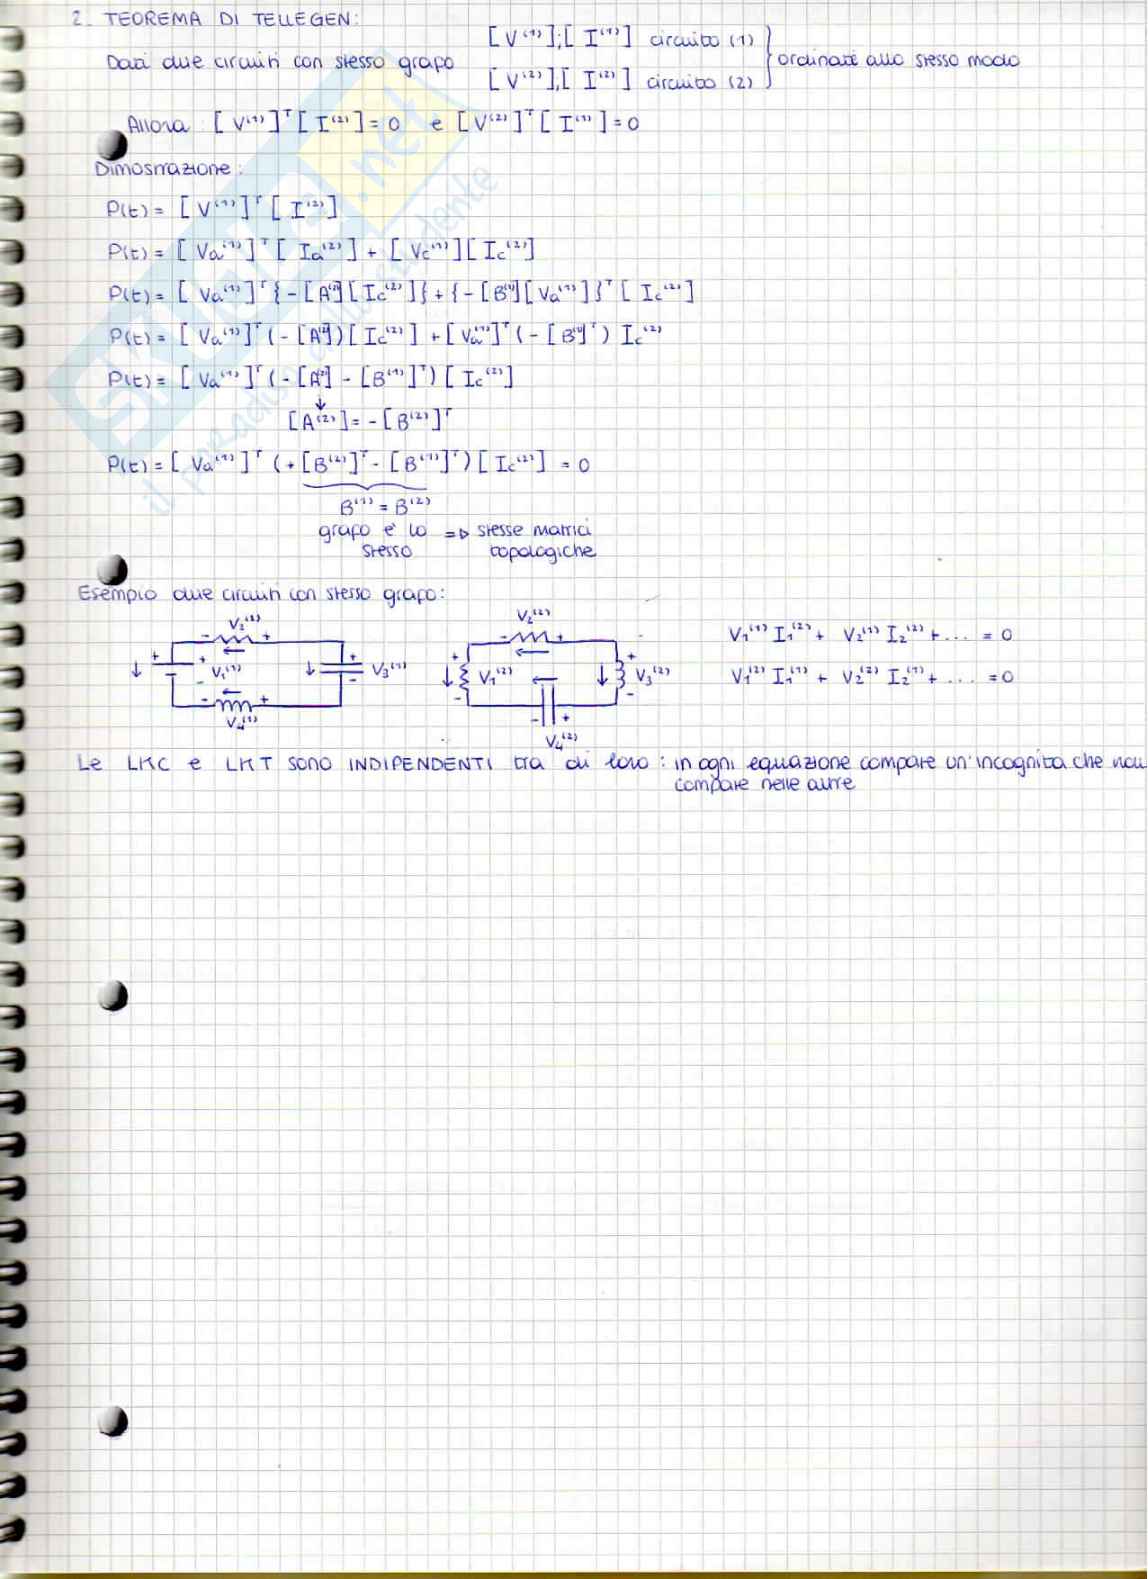 2. TEOREMA DI TELLEGEN:
Dati due circuiti con stesso grafo [V⁽¹⁾];[I⁽¹⁾] circuito (1)
[V⁽²⁾],[I⁽²⁾] circuito (2)
} ordinati allo stesso modo
Allora: [V⁽¹⁾]ᵀ[I⁽²⁾]=0 e [V⁽²⁾]ᵀ[I⁽¹⁾]=0
Dimostrazione:
P(t)= [V⁽¹⁾]ᵀ[I⁽²⁾]
P(t)= [Va⁽¹⁾]ᵀ[Ia⁽²⁾] + [Vc⁽¹⁾][Ic⁽²⁾]
P(t)= [Va⁽¹⁾]ᵀ{-[A⁽²⁾][Ic⁽²⁾]}+{-[B⁽¹⁾][Va⁽¹⁾]}ᵀ[Ic⁽²⁾]
P(t)= [Va⁽¹⁾]ᵀ(-[A⁽²⁾])[Ic⁽²⁾] +[Va⁽¹⁾]ᵀ(-[B⁽¹⁾]ᵀ) Ic⁽²⁾
P(t)= [Va⁽¹⁾]ᵀ(-[A⁽²⁾] - [B⁽¹⁾]ᵀ)[Ic⁽²⁾]
↓
[A⁽²⁾]= -[B⁽²⁾]ᵀ
P(t)= [Va⁽¹⁾]ᵀ (+[B⁽²⁾]ᵀ- [B⁽¹⁾]ᵀ)[Ic⁽²⁾] = 0
B⁽¹⁾ = B⁽²⁾
grafo è lo => stesse matrici
stesso topologiche
Esempio due circuiti con stesso grafo:
V₂⁽¹⁾
- +
+ + V₁⁽¹⁾ -
+ V₃⁽¹⁾ -
- +
V₄⁽¹⁾
V₂⁽²⁾
- +
+ V₁⁽²⁾ -
+ V₃⁽²⁾ -
- +
V₄⁽²⁾
V₁⁽¹⁾ I₁⁽²⁾ + V₂⁽¹⁾ I₂⁽²⁾ + ... = 0
V₁⁽²⁾ I₁⁽¹⁾ + V₂⁽²⁾ I₂⁽¹⁾ + ... = 0
Le LKC e LKT SONO INDIPENDENTI tra di loro: in ogni equazione compare un'incognita che non
compare nelle altre
SKUOLA.net
il paradiso dello studente